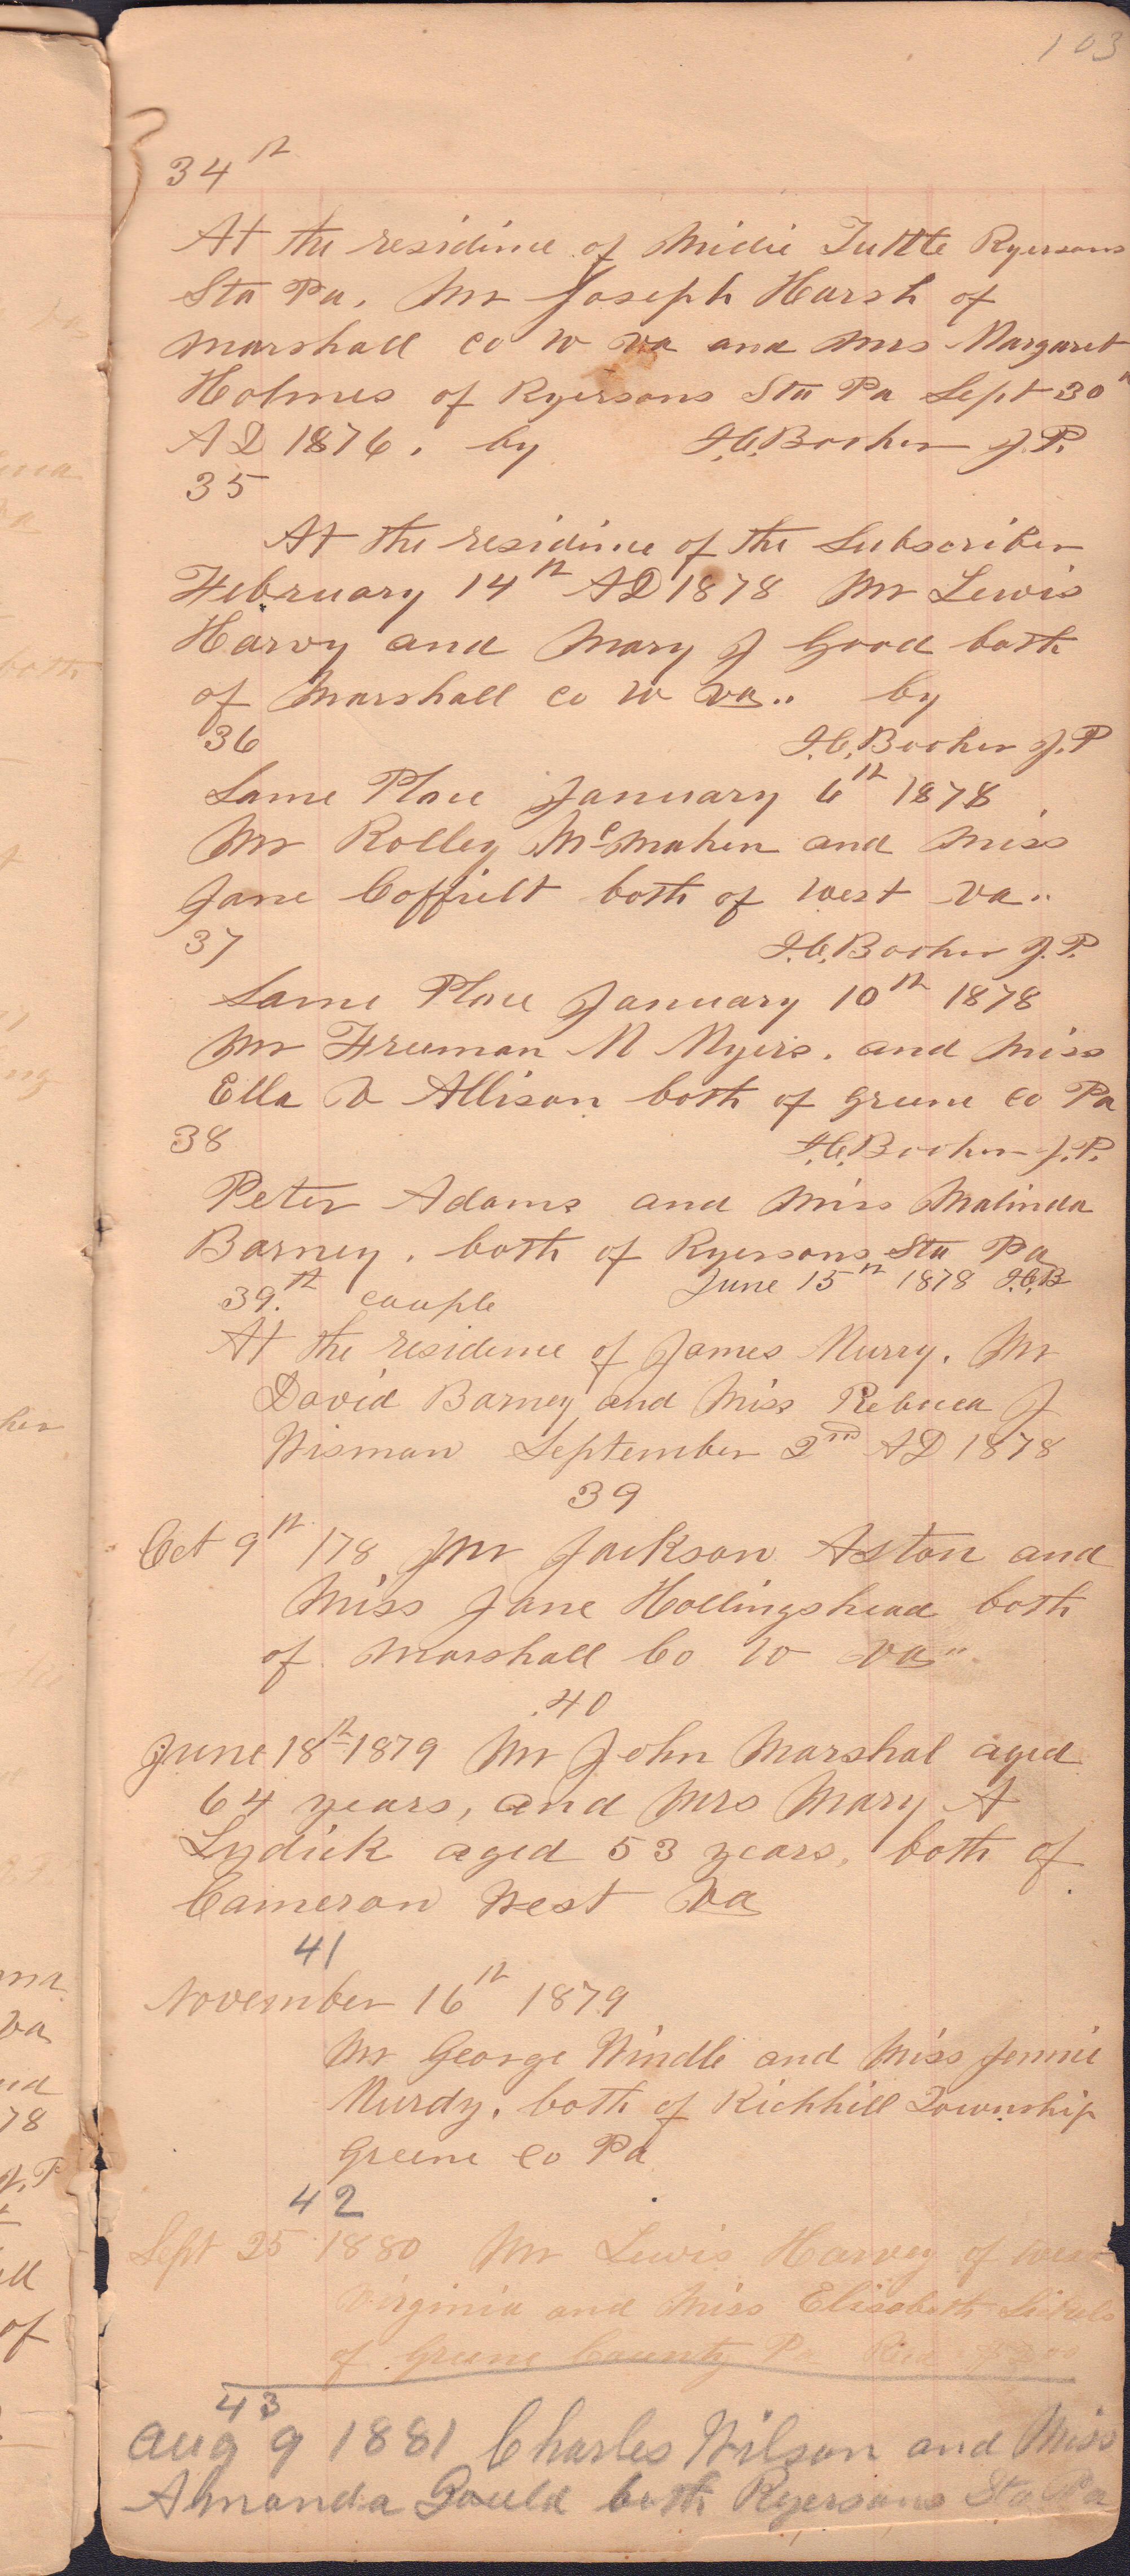 103
34th
At the residince of Midie Tuttle Ryersons
Sta Pa. Mr Joseph Harsh of
Marshall co w va and Mrs Margaret
Holmes of Ryersons Sta Pa Sept 30th
AD 1876. by J.C. Booher J.P.
35
At the residince of the Subscriber
February 14th AD 1878 Mr Lewis
Harvy and Mary J Good both
of Marshall co W va.. by
36 J.C. Booher J.P
Same Place January 6th 1878
Mr Rolley McMahen and Miss
Jane Coffielt both of west va..
37 J.C. Booher J.P.
Same Place January 10th 1878
Mr Freeman M Myers. and Miss
Ella V Allison both of Greene co Pa
38 J.C. Booher J.P.
Peter Adams and Miss Malinda
Barney. both of Ryersons Sta Pa
June 15th 1878 J.C.B
39.th couple
At the residence of James Murry. Mr
David Barney and Miss Rebecca J
Wisman September 2nd AD 1878
39
Oct 9th 178 Mr Jackson Aston and
Miss Jane Hollingshead both
of Marshall Co W va"
40
June 18th 1879 Mr John Marshal aged
64 years, and Mrs Mary A
Lydick aged 53 years, both of
Cameron West Va
41
November 16th 1879
Mr George Windle and Miss Jennie
Murdy. both of Richhill Township
Greene co Pa
42
Sept 25 1880 Mr Lewis Harvey of West
Virginia and Miss Elisabeth
of Greene County Pa
43
Aug 9 1881 Charles Wilson and Miss
Amanda Gould both Ryersons Sta Pa